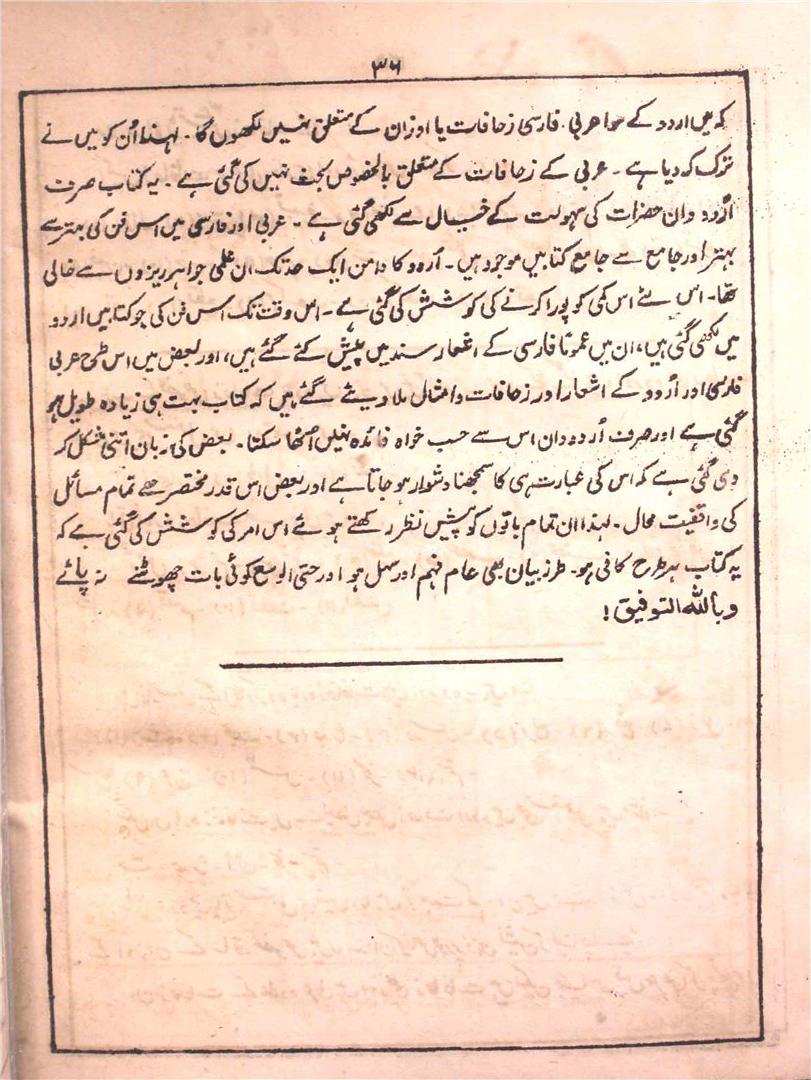 ۳۶
کہ میں اردو کے سوا عربی، فارسی زحافات یا اوزان کے متعلق نہیں لکھوں گا۔ لہٰذا اُن کو میں نے
ترک کر دیا ہے۔ عربی کے زحافات کے متعلق بالخصوص بحث نہیں کی گئی ہے۔ یہ کتاب صرف
اُردو دان حضرات کی سہولت کے خیال سے لکھی گئی ہے۔ عربی اور فارسی میں اس فن کی بہتر سے
بہتر اور جامع سے جامع کتابیں موجود ہیں۔ اُردو کا دامن ایک حد تک ان علمی جواہر ریزوں سے خالی
تھا۔ اس لئے اس کمی کو پورا کرنے کی کوشش کی گئی ہے۔ اس وقت تک اس فن کی جو کتابیں اردو
میں لکھی گئی ہیں، ان میں عموماً فارسی کے اشعار سند میں پیش کئے گئے ہیں، اور بعض میں اس طرح عربی
فارسی اور اُردو کے اشعار اور زحافات و امثال ملا دیئے گئے ہیں کہ کتاب بہت ہی زیادہ طویل ہو
گئی ہے اور صرف اُردو دان اس سے حسب خواہ فائدہ نہیں اُٹھا سکتا۔ بعض کی زبان اتنی مشکل کر
دی گئی ہے کہ اس کی عبارت ہی کا سمجھنا دشوار ہو جاتا ہے اور بعض اس قدر مختصر ہے تمام مسائل
کی واقفیت محال۔ لہذا ان تمام باتوں کو پیش نظر رکھتے ہوئے اس امر کی کوشش کی گئی ہے کہ
یہ کتاب ہر طرح کافی ہو۔ طرز بیان بھی عام فہم اور سہل ہو اور حتی الوسع کوئی بات چھوٹنے نہ پائے
وباللہ التوفیق!